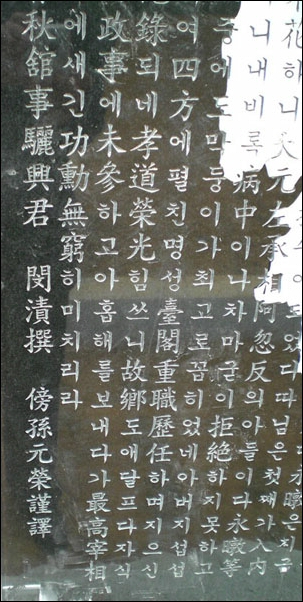 暾은지금
이되었다따님은첫째가入内
花하니大元左丞相阿忽反의아들이다永暾等
니내비록病中이나차마글이拒絶하지못하고
중에도막둥이가최고로꼼히었네아버지섭섭
여四方에펼친명성臺閣重職歷任하며지으신
錄되네孝道榮光힘쓰니故鄕도애달프다자식
政事에未參하고아홉해를보내다가最高宰相
에새긴功勳無窮히미치리라
秋舘事驪興君 閔漬撰 傍孫元榮謹譯